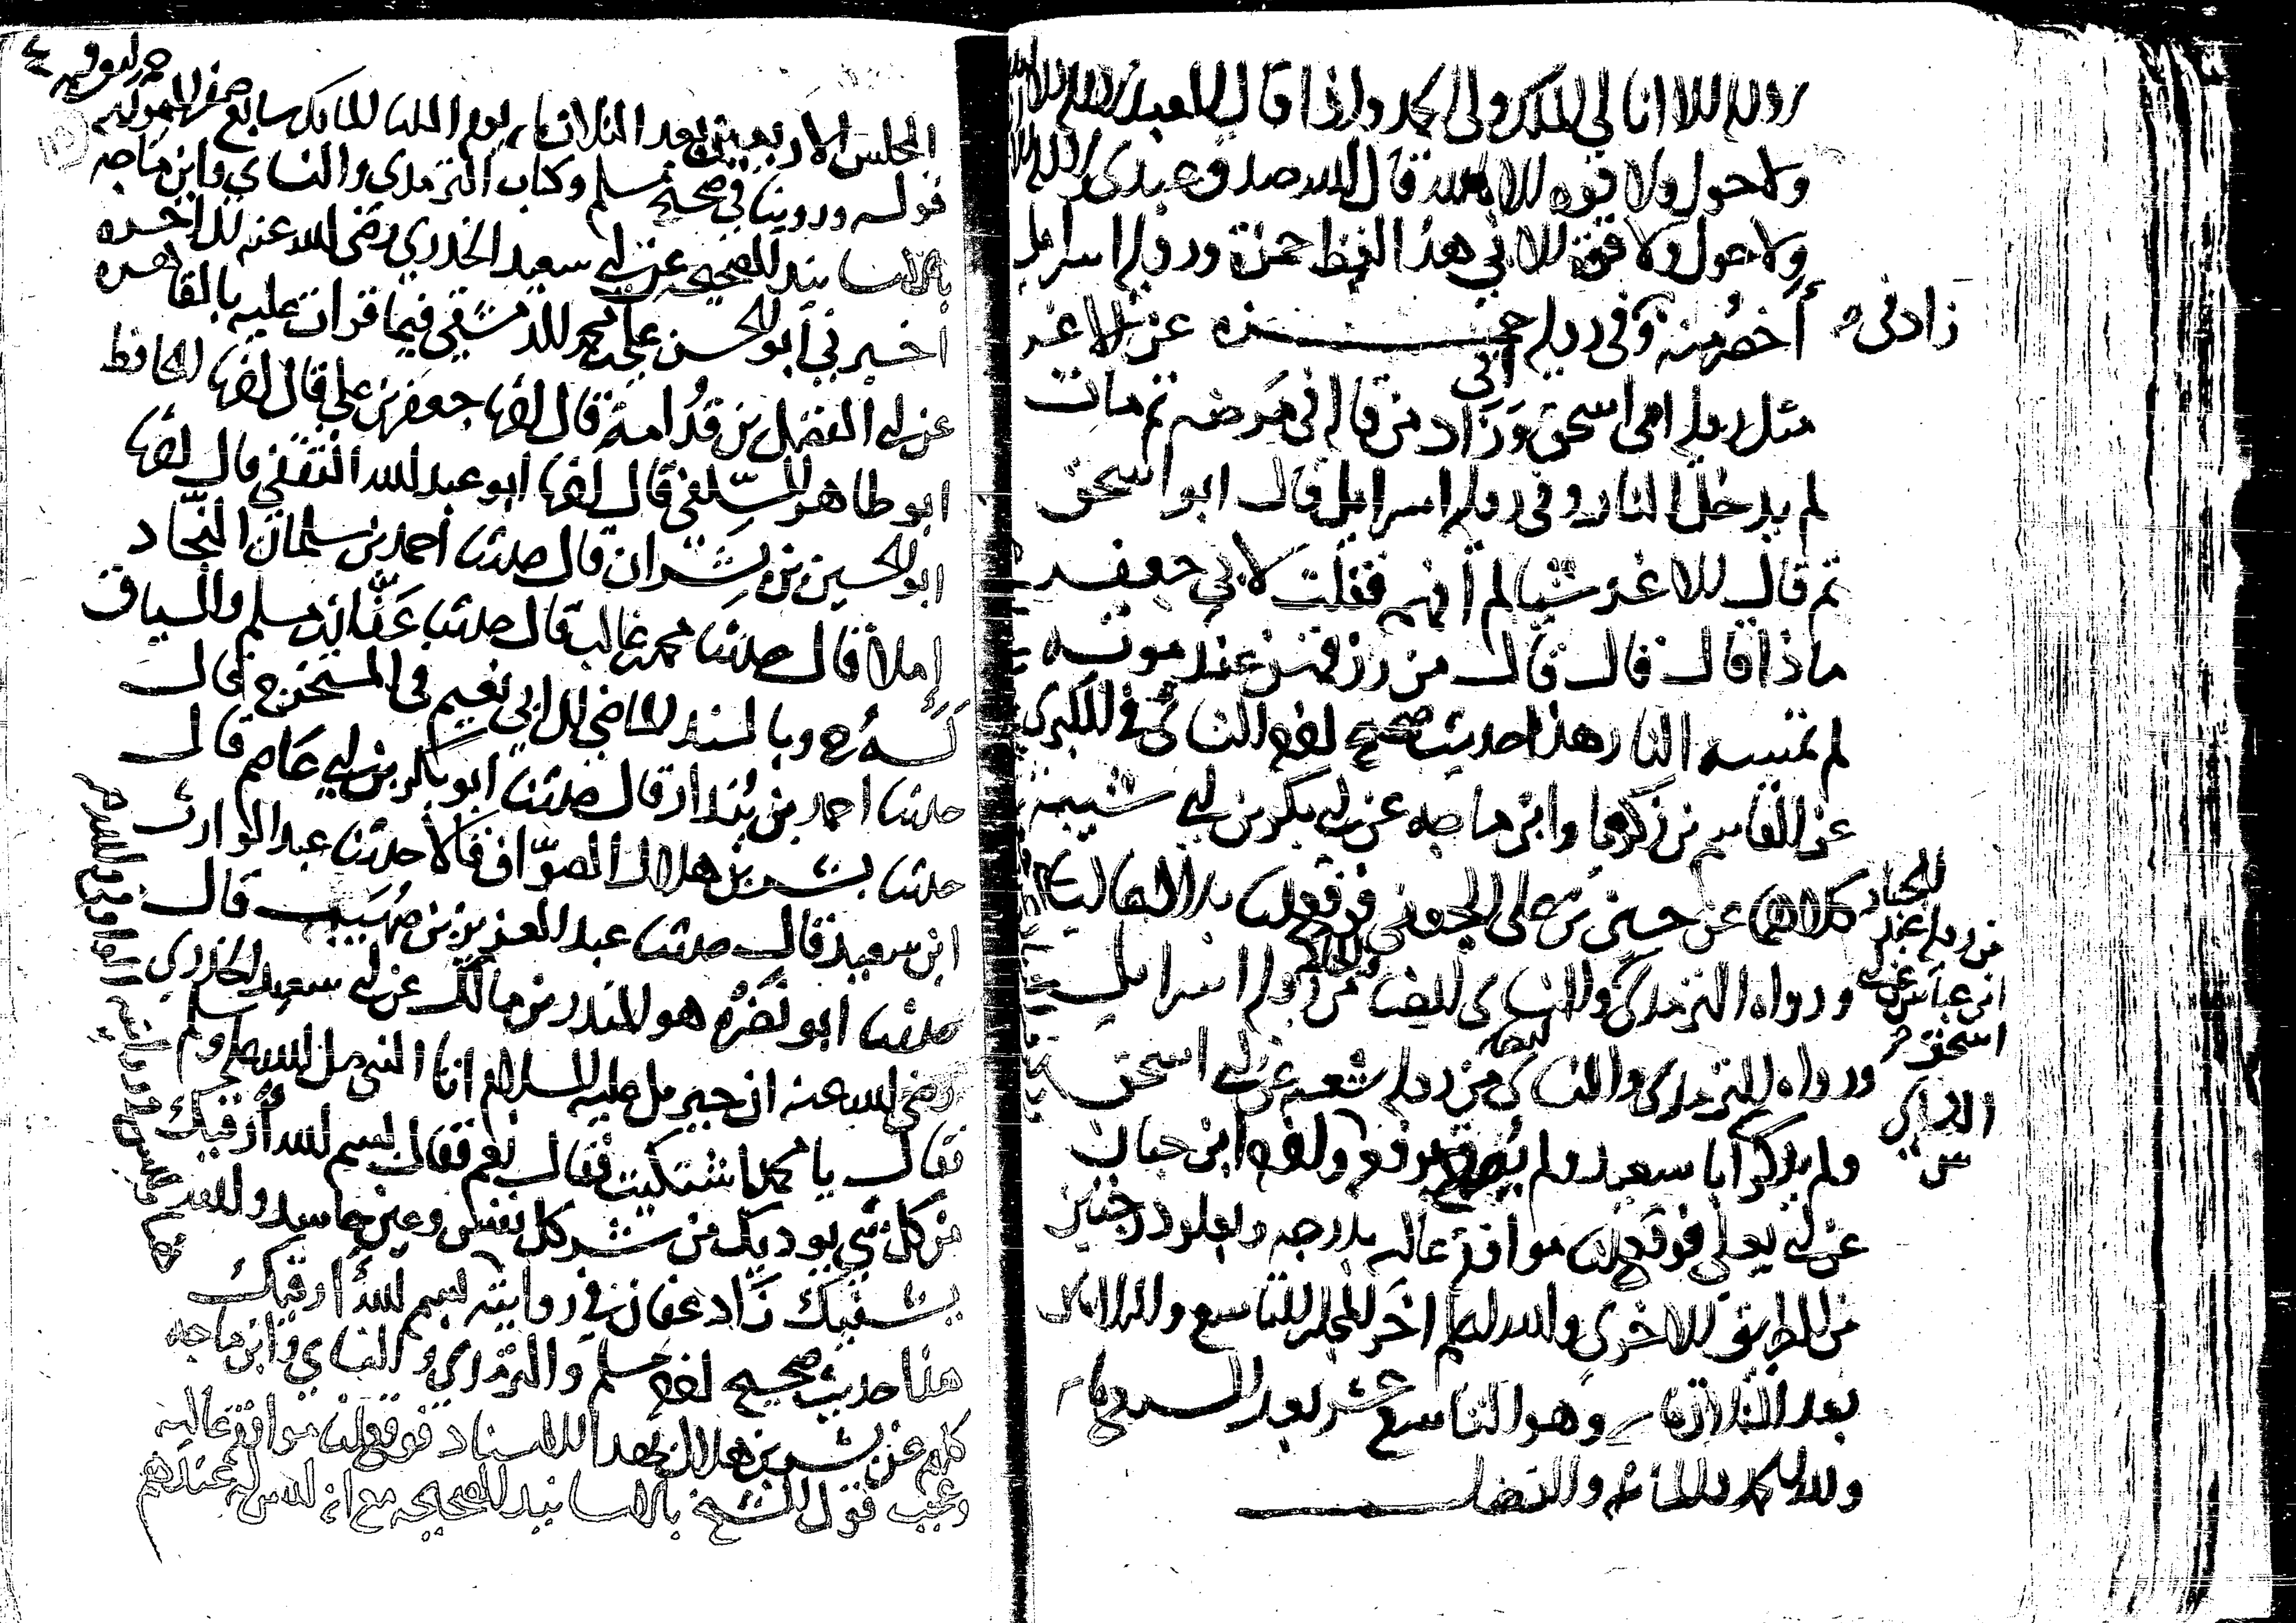 لا إله إلا أنا لي الملك ولي الحمد وإذا قال العبد لا إله إلا الله
ولا حول ولا قوة إلا بالله قال الله صدق عبدي لا إله إلا أنا
ولا حول ولا قوة إلا بي هذا لفظ حمزة ورواية اسرائيل
أخصر منه وفي رواية حمزة عن الاغر
زادني
مثل رواية ابي اسحق وزاد من قالها في مرضه ثم مات
لم يدخل النار وفي رواية اسرائيل قال ابو اسحق
ثم قال الاغر شيئا لم أفهمه فقلت لابي جعفر
ماذا قال قال قال من رزقهن عند موته
لم تمسه النار هذا حديث صحيح أخرجه النسائي في الكبرى
عن القاسم بن زكريا وابن ماجه عن أبي بكر بن أبي شيبة
كلاهما عن حسين بن علي الجعفي فوقع لنا بدلا عاليا
ورواه الترمذي والنسائي أيضا من رواية اسرائيل
ورواه الترمذي والنسائي أيضا من رواية شعبة عن أبي اسحق
ولم يذكر أبا سعيد ولم يصرح برفعه وأخرجه ابن حبان
عن أبي يعلى فوقع لنا موافقة عالية بدرجة وبعلو درجتين
من الطريق الاخرى والله أعلم آخر المجلس التاسع والثلاثين
بعد الثلاثمائة وهو التاسع عشر بعد السبعمائة
ولله الحمد والمنة والفضل
المجلس الاربعين بعد الثلاثمائة يوم الثلاثاء سابع صفر
قوله وروينا في صحيح مسلم وكتاب الترمذي والنسائي وابن ماجه
بالاسانيد الصحيحة عن أبي سعيد الخدري رضي الله عنه الى آخره
أخبرني أبو الحسن علي بن محمد الدمشقي فيما قرأت عليه بالقاهرة
عن أبي الفضل بن قدامة قال أخبرنا جعفر بن علي قال أخبرنا الحافظ
ابو طاهر السلفي قال أخبرنا أبو عبد الله الثقفي قال أخبرنا
ابو الحسين بن بشران قال حدثنا أحمد بن سلمان النجاد
إملاء قال حدثنا محمد بن غالب قال حدثنا عفان بن مسلم والسياق
له ح وبالسند الماضي الى ابي نعيم في المستخرج قال
حدثنا احمد بن بندار قال حدثنا ابو بكر بن أبي عاصم قال
حدثنا بشر بن هلال الصواف قالا حدثنا عبد الوارث
ابن سعيد قال حدثنا عبد العزيز بن صهيب قال
حدثنا ابو نضرة هو المنذر بن مالك عن أبي سعيد الخدري
رضي الله عنه ان جبريل عليه السلام اتى النبي صلى الله عليه وسلم
فقال يا محمد اشتكيت فقال نعم فقال بسم الله أرقيك
من كل شيء يوذيك من شر كل نفس وعين حاسد والله
يشفيك زاد عفان في روايته بسم الله أرقيك
هذا حديث صحيح أخرجه مسلم والترمذي والنسائي وابن ماجه
كلهم عن بشر بن هلال بهذا الاسناد فوقع لنا موافقة عالية
وعجب قول الشيخ بالاسانيد الصحيحة مع انه ليس له عندهم